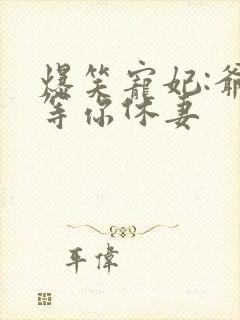 爆笑寵妃:爺
等你休妻
車偉